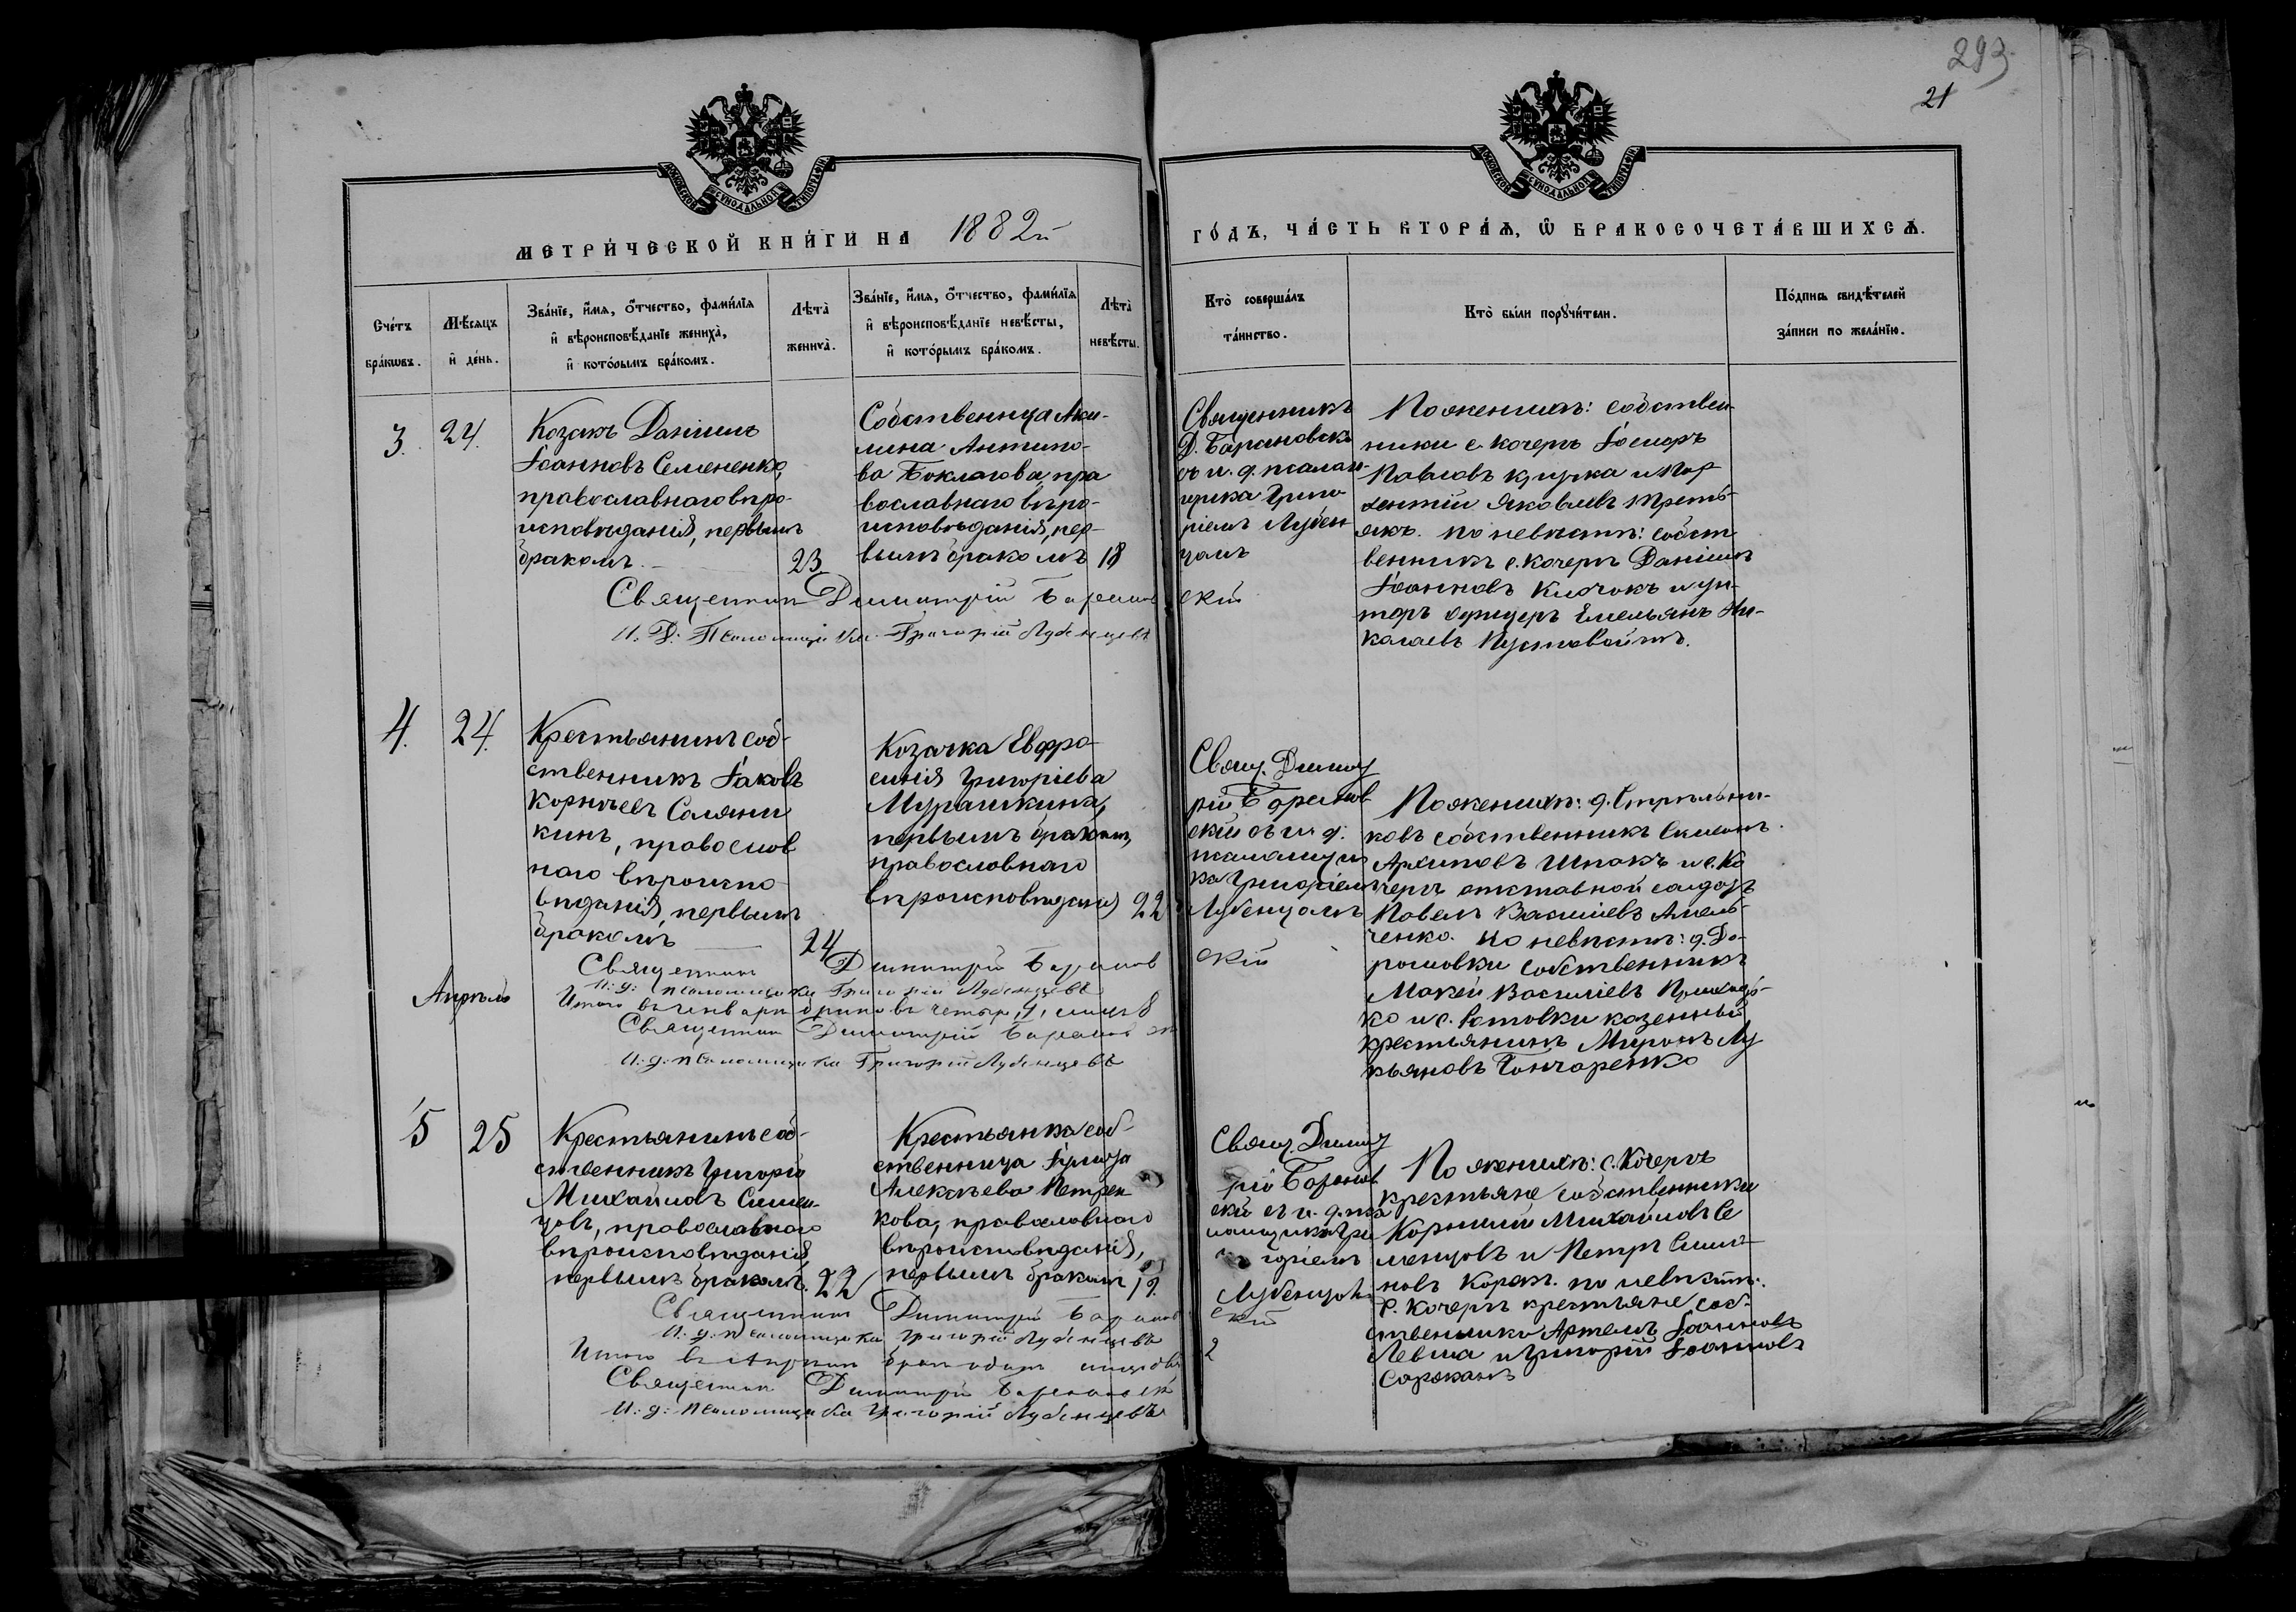 293
21
МОСКОВСКОЙ СѴНОДАЛЬНОЙ ТИПОГРАФІИ
МОСКОВСКОЙ СѴНОДАЛЬНОЙ ТИПОГРАФІИ
МЕТРИ́ЧЕСКОЙ КНИ́ГИ НА 1882й
ГО́ДЪ, ЧА́СТЬ ВТОРА́Ѧ, Ѡ БРАКОСОЧЕТА́ВШИХСѦ.
Сче́тъ
бра́кѡвъ.
Мѣ́сѧцъ
и҆ де́нь.
Зва́нїе, и҆́мѧ, ѻ҆́тчество, фами́лїѧ
и҆ вѣроисповѣ́данїе жениха̀,
и҆ кото́рымъ бра́комъ.
Лѣта̀
жениха̀.
Зва́нїе, и҆́мѧ, ѻ҆́тчество, фами́лїѧ
и҆ вѣроисповѣ́данїе невѣ́сты,
и҆ кото́рымъ бра́комъ.
Лѣта̀
невѣ́сты.
Кто̀ соверша́лъ
та́инство.
Кто̀ бы́ли порꙋчи́тели.
По́дпись свидѣ́телей
за́писи по жела́нїю.
3.
24.
Козакъ Даніилъ
Іоанновъ Семененко,
православнаго вѣро-
исповѣданія, первымъ
бракомъ.
23
Собственница Аки-
лина Антипо-
ва Боклагова, пра
вославнаго вѣро-
исповѣданія, пер-
вымъ бракомъ
18
Священникъ
Д. Барановск
съ и. д. псалом-
щика Григо
ріемъ Лубен
цомъ
По женихѣ: собствен-
ники с. Кочергъ
Павловъ и
Яковлевъ Треть-
якъ. по невѣстѣ: собст
венникъ с. Кочергъ Даніилъ
Іоанновъ Клочокъ и ун-
теръ офицеръ Емельянъ Ни-
колаевъ Пустовойтъ.
Священникъ Димитрій Баранов
скій
И. Д. Псаломщика Григорій Лубенцевъ
4.
24.
Крестьянинъ соб-
ственникъ Іаковъ
Корніевъ Саляни
кинъ, православ
наго вѣроиспо
вѣданія, первымъ
бракомъ
24
Козачка Евфро
синія Григоріева
Мурашкина,
первымъ бракомъ,
православнаго
вѣроисповѣданія
22
Свящ. Димит
рій Баранов
скій съ и. д.
псаломщи
ка Григоріемъ
Лубенцомъ
По женихѣ: д. Стрѣльни-
ковъ собственникъ Симеонъ
Архиповъ Шпакъ и с. Ко
чергъ отставной солдатъ
Павелъ Василіевъ Амель-
ченко. по невѣстѣ: д. До-
рошовки собственникъ
Мокей Василіевъ Приход-
ко и с. казенный
крестьянинъ Миронъ Лу
кьяновъ Гончаренко
Священникъ Димитрій Баранов
скій
И. д. псаломщика Григорій Лубенцевъ
Итого въ январѣ браковъ четыре, 4, лицъ 8
Священникъ Димитрій Барановск
И. д. псаломщика Григорій Лубенцевъ
Апрѣль
5
25
Крестьянинъ соб-
ственникъ Григорій
Михаиловъ Семен-
цовъ, православнаго
вѣроисповѣданія,
первымъ бракомъ.
22
Крестьянка соб-
ственница
Алексѣева Петрен
кова, православнаго
вѣроисповѣданія,
первымъ бракомъ
19.
Свящ. Димит
рій Баранов
скій съ и. д. пса
ломщика Гри
горіемъ
Лубенцовъ
По женихѣ: с. Кочергъ
крестьяне собственники
Корнилій Михаиловъ Се
менцовъ и Петръ
новъ по невѣстѣ:
с. Кочергъ крестьяне соб-
ственники Артемъ Іоанновъ
Левша и Григорій Іоанновъ
Сорокань
Священникъ Димитрій Баранов
скій
И. д. псаломщика Григорій Лубенцевъ
Итого въ Апрѣлѣ бракъ одинъ лицъ два
2
Священникъ Димитрій Барановскі
И. д. псаломщика Григорій Лубенцевъ